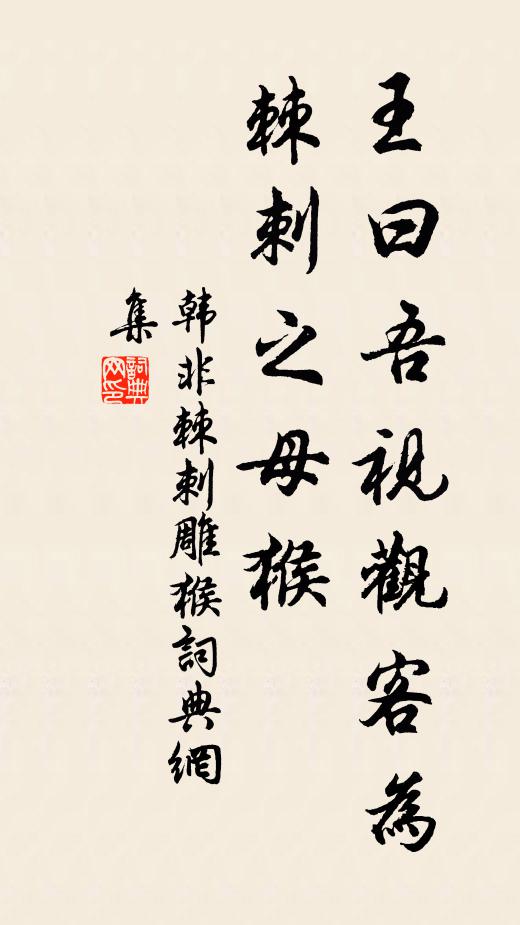 王曰吾視觀客為
棘刺之母猴
韩非棘刺雕猴詞典網
集
詞典
网印